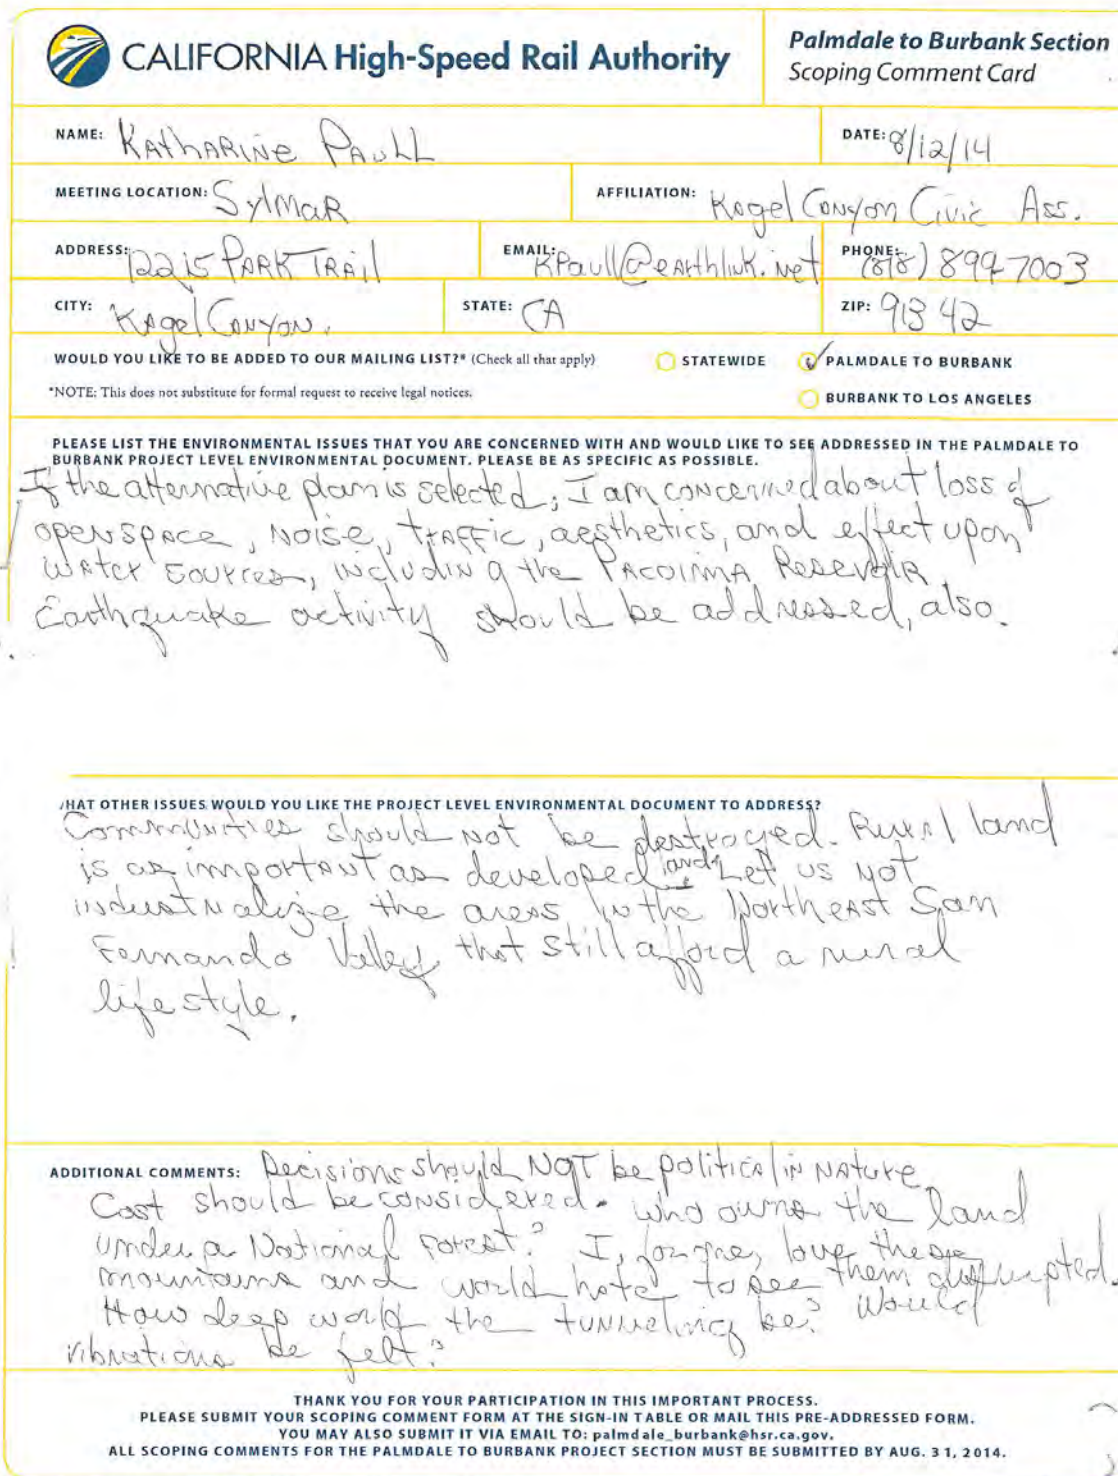 CALIFORNIA High-Speed Rail Authority
Palmdale to Burbank Section
Scoping Comment Card
NAME: KAthARiNe PAulL
DATE: 8/12/14
MEETING LOCATION: SylMaR
AFFILIATION: Kagel Canyon Civic Ass.
ADDRESS: 12215 PARK TRAil
EMAIL: KPaull@earthlink.net
PHONE: (818) 899-7003
CITY: Kagel Canyon.
STATE: CA
ZIP: 91342
WOULD YOU LIKE TO BE ADDED TO OUR MAILING LIST?* (Check all that apply)
STATEWIDE
PALMDALE TO BURBANK
*NOTE: This does not substitute for formal request to receive legal notices.
BURBANK TO LOS ANGELES
PLEASE LIST THE ENVIRONMENTAL ISSUES THAT YOU ARE CONCERNED WITH AND WOULD LIKE TO SEE ADDRESSED IN THE PALMDALE TO
BURBANK PROJECT LEVEL ENVIRONMENTAL DOCUMENT. PLEASE BE AS SPECIFIC AS POSSIBLE.
If the alternative plan is selected, I am concerned about loss of
open space, noise, traffic, aesthetics, and effect upon
water sources, including the Pacoima Reservoir.
Earthquake activity should be addressed, also.
HAT OTHER ISSUES WOULD YOU LIKE THE PROJECT LEVEL ENVIRONMENTAL DOCUMENT TO ADDRESS?
Communities should not be destroyed. Rural land
is as important as developed land. Let us not
industrialize the areas in the Northeast San
Fernando Valley that still afford a rural
lifestyle.
ADDITIONAL COMMENTS: Decisions should NOT be political in nature.
Cost should be considered. Who owns the land
under a National Forest? I, for one, love these
mountains and would hate to see them disrupted.
How deep would the tunneling be? Would
vibrations be felt?
THANK YOU FOR YOUR PARTICIPATION IN THIS IMPORTANT PROCESS.
PLEASE SUBMIT YOUR SCOPING COMMENT FORM AT THE SIGN-IN TABLE OR MAIL THIS PRE-ADDRESSED FORM.
YOU MAY ALSO SUBMIT IT VIA EMAIL TO: palmdale_burbank@hsr.ca.gov.
ALL SCOPING COMMENTS FOR THE PALMDALE TO BURBANK PROJECT SECTION MUST BE SUBMITTED BY AUG. 31, 2014.